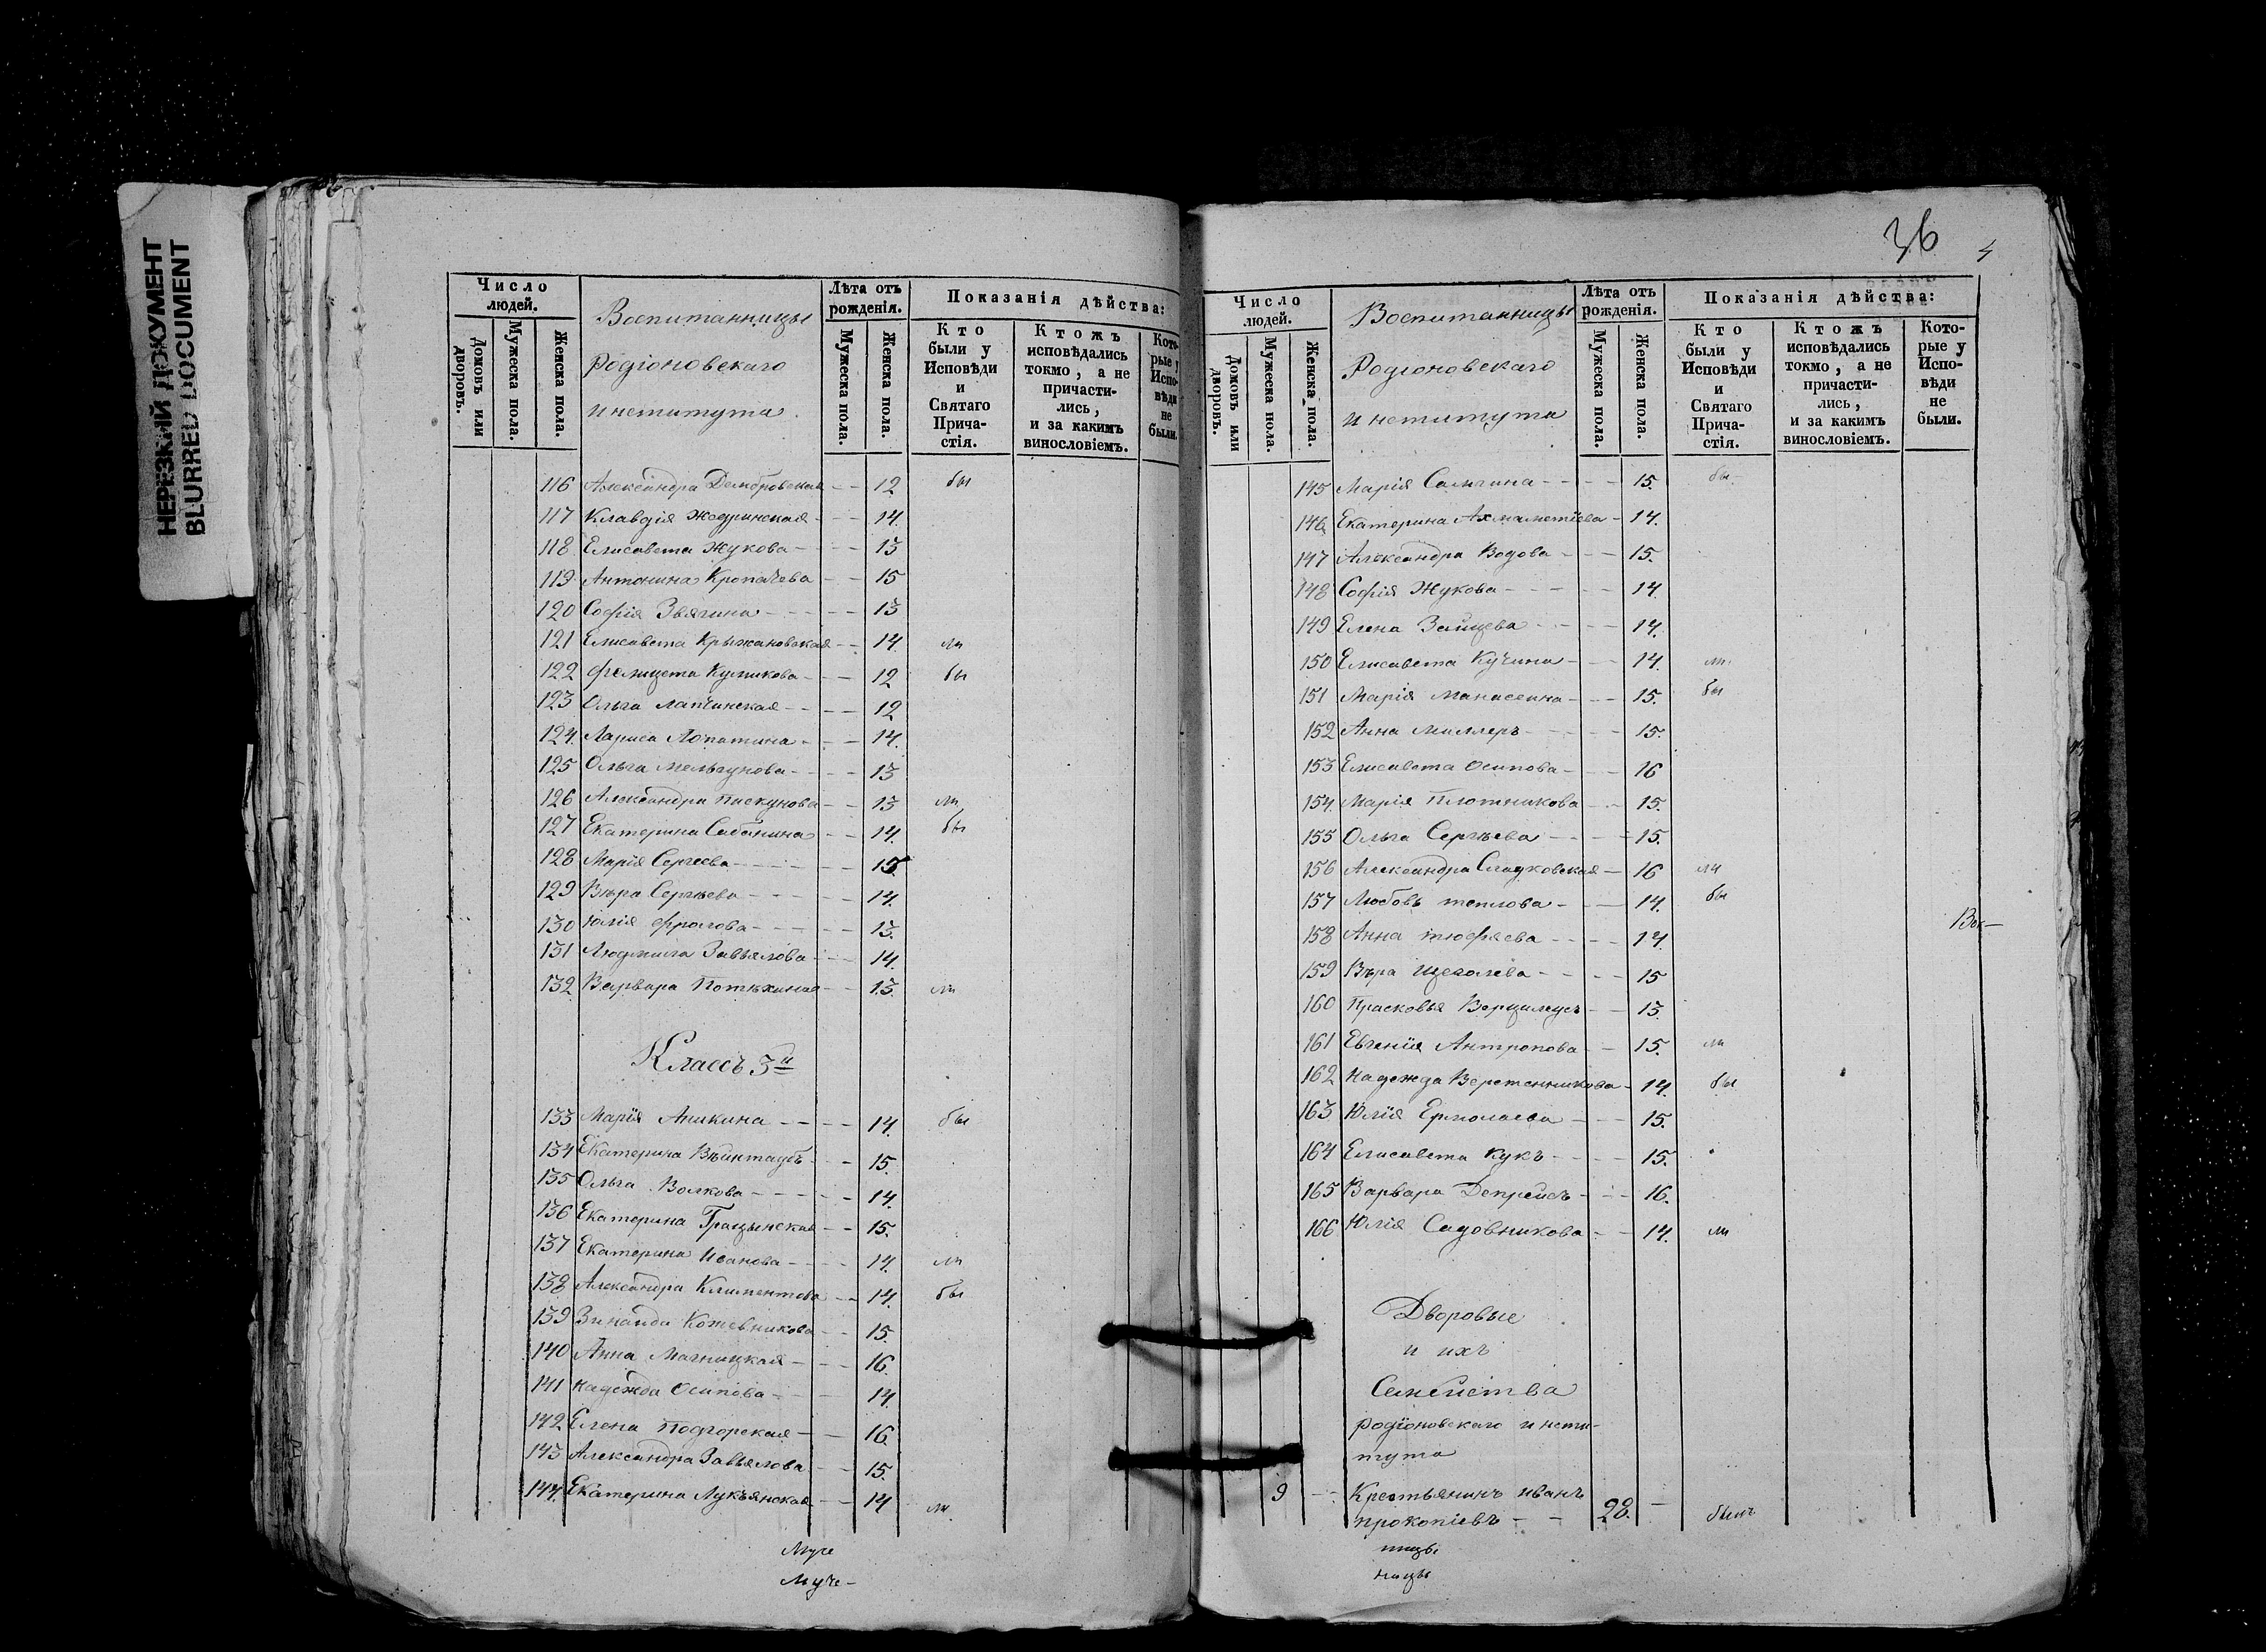 НЕРЕЗКИЙ ДОКУМЕНТ
BLURRED DOCUMENT
Число людей.
Домовъ или дворовъ.
Мужеска пола.
Женска пола.
Воспитанницы
Родіоновскаго
института
Лѣта отъ рожденія.
Мужеска пола.
Женска пола.
Показанія дѣйства:
Кто были у Исповѣди и Святаго Причастія.
Ктожъ исповѣдались токмо, а не причастились, и за какимъ винословіемъ.
Которые у Исповѣди не были.
116 Александра Домбровская - - 12 бы
117 Клавдія Жедринская - - 14.
118 Елисавета Жукова - - - 13
119 Антонина Кропачева - - 15
120 Софія Звягина - - - 13
121 Елисавета Крыжановская - - 14. ли
122 Фелицета Куликова - - - 12 бы
123 Ольга Лапчинская - - - 12
124. Лариса Лопатина - - - 14.
125 Ольга Мельгунова - - - 13
126 Александра Пискунова - - 13 ли
127 Екатерина Сабанина - - 14. бы
128 Марія Сергеева - - - 15.
129 Вѣра Сергѣева - - - 14.
130 Юлія Фролова - - - 13.
131 Людмила Завьялова - - 14.
132 Варвара Потѣхина - - 13. ли
Классъ 3й
133 Марія Аникина - - - 14. бы
134 Екатерина Вейнтаубъ - - 15.
135 Ольга Волкова - - - 14.
136 Екатерина Грацынская - - 15.
137 Екатерина Иванова - - - 14. ли
138 Александра Климентова - - 14. бы
139 Зинаида Кожевникова - - 15.
140 Анна Магницкая - - - 16.
141 Надежда Осипова - - - 14.
142 Елена Подгорская - - 16.
143 Александра Завьялова - - 15.
144. Екатерина Лукьянская - - 14 ли
Муче
Муче-
36
Число людей.
Домовъ или дворовъ.
Мужеска пола.
Женска пола.
Воспитанницы
Родіоновскаго
института
Лѣта отъ рожденія.
Мужеска пола.
Женска пола.
Показанія дѣйства:
Кто были у Исповѣди и Святаго Причастія.
Ктожъ исповѣдались токмо, а не причастились, и за какимъ винословіемъ.
Которые у Исповѣди не были.
145 Марія Сальгина - - - 15. бы
146 Екатерина Ахмаметіева - 14.
147 Александра Водова - - - 15.
148 Софія Жукова - - - 14.
149 Елена Зайцева - - - 14.
150 Елисавета Кучина - - - 14. ли
151 Марія Манасеина - - - 15. бы
152 Анна Миллеръ - - - 15.
153 Елисавета Осипова - - - 16
154. Марія Плотникова - - 15.
155 Ольга Сергѣева - - - 15.
156 Александра Сладковская - 16 ли
157 Любовь Теплова - - - 14. бы
158 Анна Тюфяева - - - 14.
159 Вѣра Щеголева - - - 15
160 Прасковья - - 13.
161 Евгенія Антропова - - 15. ли
162 Надежда Веретенникова - 14. бы
163 Юлія Ермолаева - - - 15.
164 Елисавета Кукъ - - - 15.
165 Варвара Депрейсъ - - - 16.
166 Юлія Садовникова - - 14. ли
Дворовые
и ихъ
Семейства
родіоновскаго инсти-
тута
9 Крестьянинъ Иванъ
Прокопіевъ - - 28. былъ
ницы
ницы